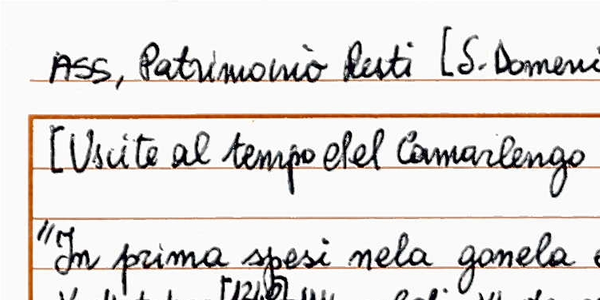 ASS, Patrimonio Resti [S. Domeni
[Uscite al tempo del Camarlengo
"In prima spesi nela gonela e